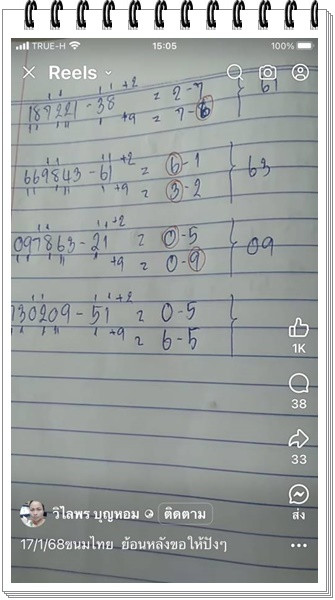 TRUE-H 15:05 100%
Reels
+2
187221-38 = 2-7
+9 = 7-6
61
+2
669843-61 = 6-1
+9 = 3-2
63
+2
097863-21 = 0-5
+9 = 0-9
09
+2
730209-51 = 0-5
+9 = 6-5
1K
38
33
ส่ง
วิไลพร บุญหอม ติดตาม
17/1/68ขนมไทย ย้อนหลังขอให้ปังๆ